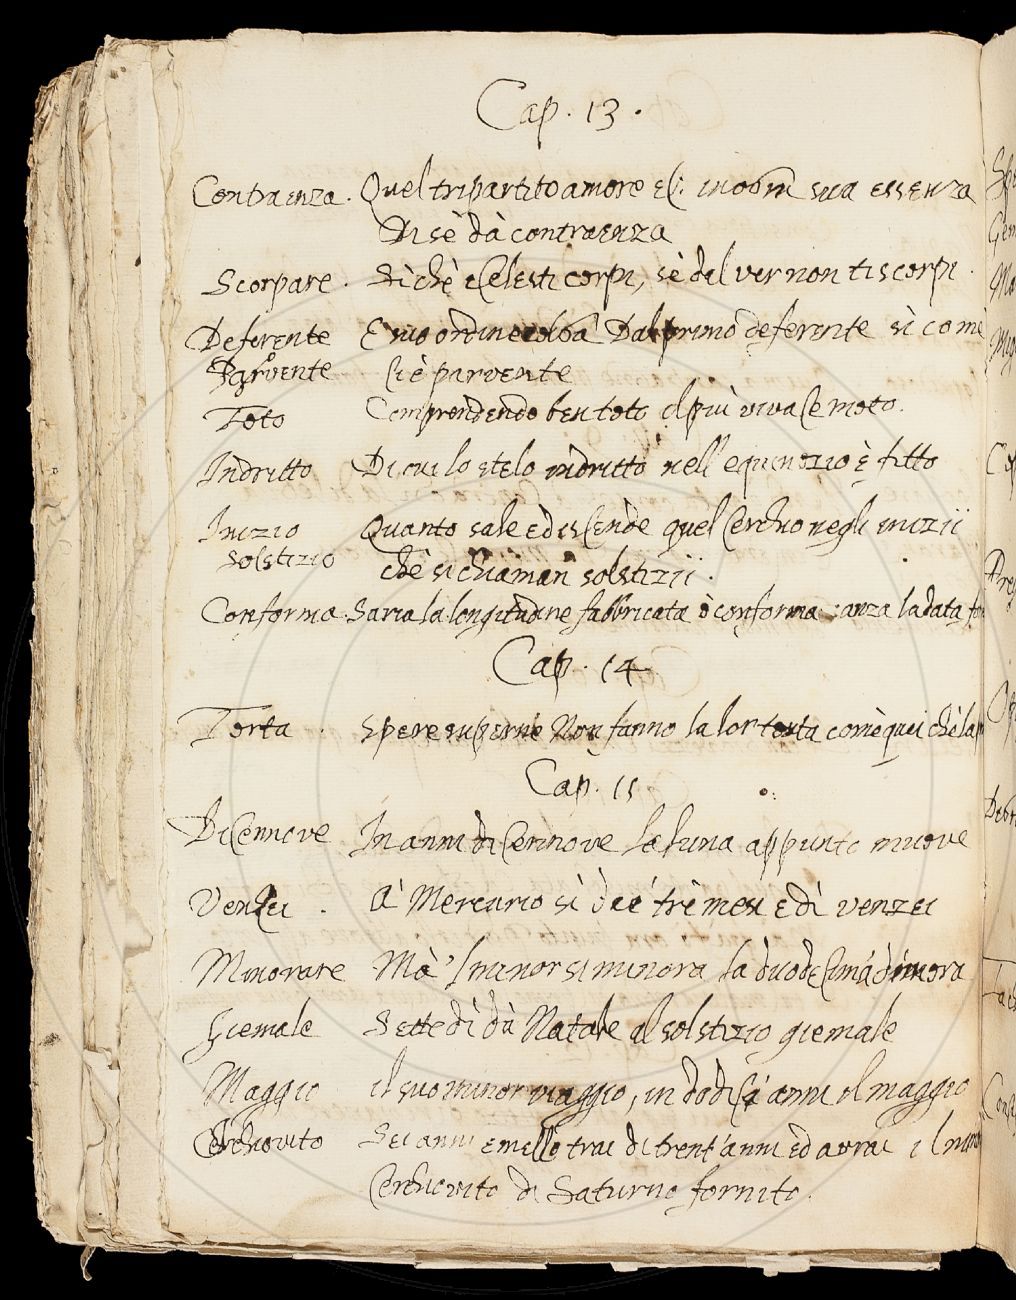 Cap. 13.
Contraenza. Quel tripartito amore e c: in ogni sua essenza
Di sè dà contraenza
Scorpare. Sì chè e Celesti corpi, sè dal ver non ti scorpi.
Deferente E suo ordine Dal primo deferente sì comè
Parvente ci è parvente
Toto Comprendendo ben toto il più vivaCe moto.
Indritto Di cui lo stelo indritto nell' equinozio è fitto
Inizio Quanto sale ediscende quel Cerchio negli inizii
Solstizio chè si chiaman solstizii.
Conforma. Saria la longitudine fabbricata è conforma sanza la data
Cap. 14
Torta. Spere superne Non fanno la lor torta comè quei chè la
Cap. 15
DiCennove In anni diCennove la luna appunto muove
Venzei. A' Mercurio sì dàe trè mesi e dì venzei
Minorare Mà 'l minor si minora la duodeCima dimora
Giemale Sette dì dà Natale al solstizio giemale
Maggio il suo minor viaggio, in dodiCi anni il maggio
Cerchiovito Sei anni e mezzo trai di trent'anni ed avrai il
Cerchiovito di Saturno fornito.